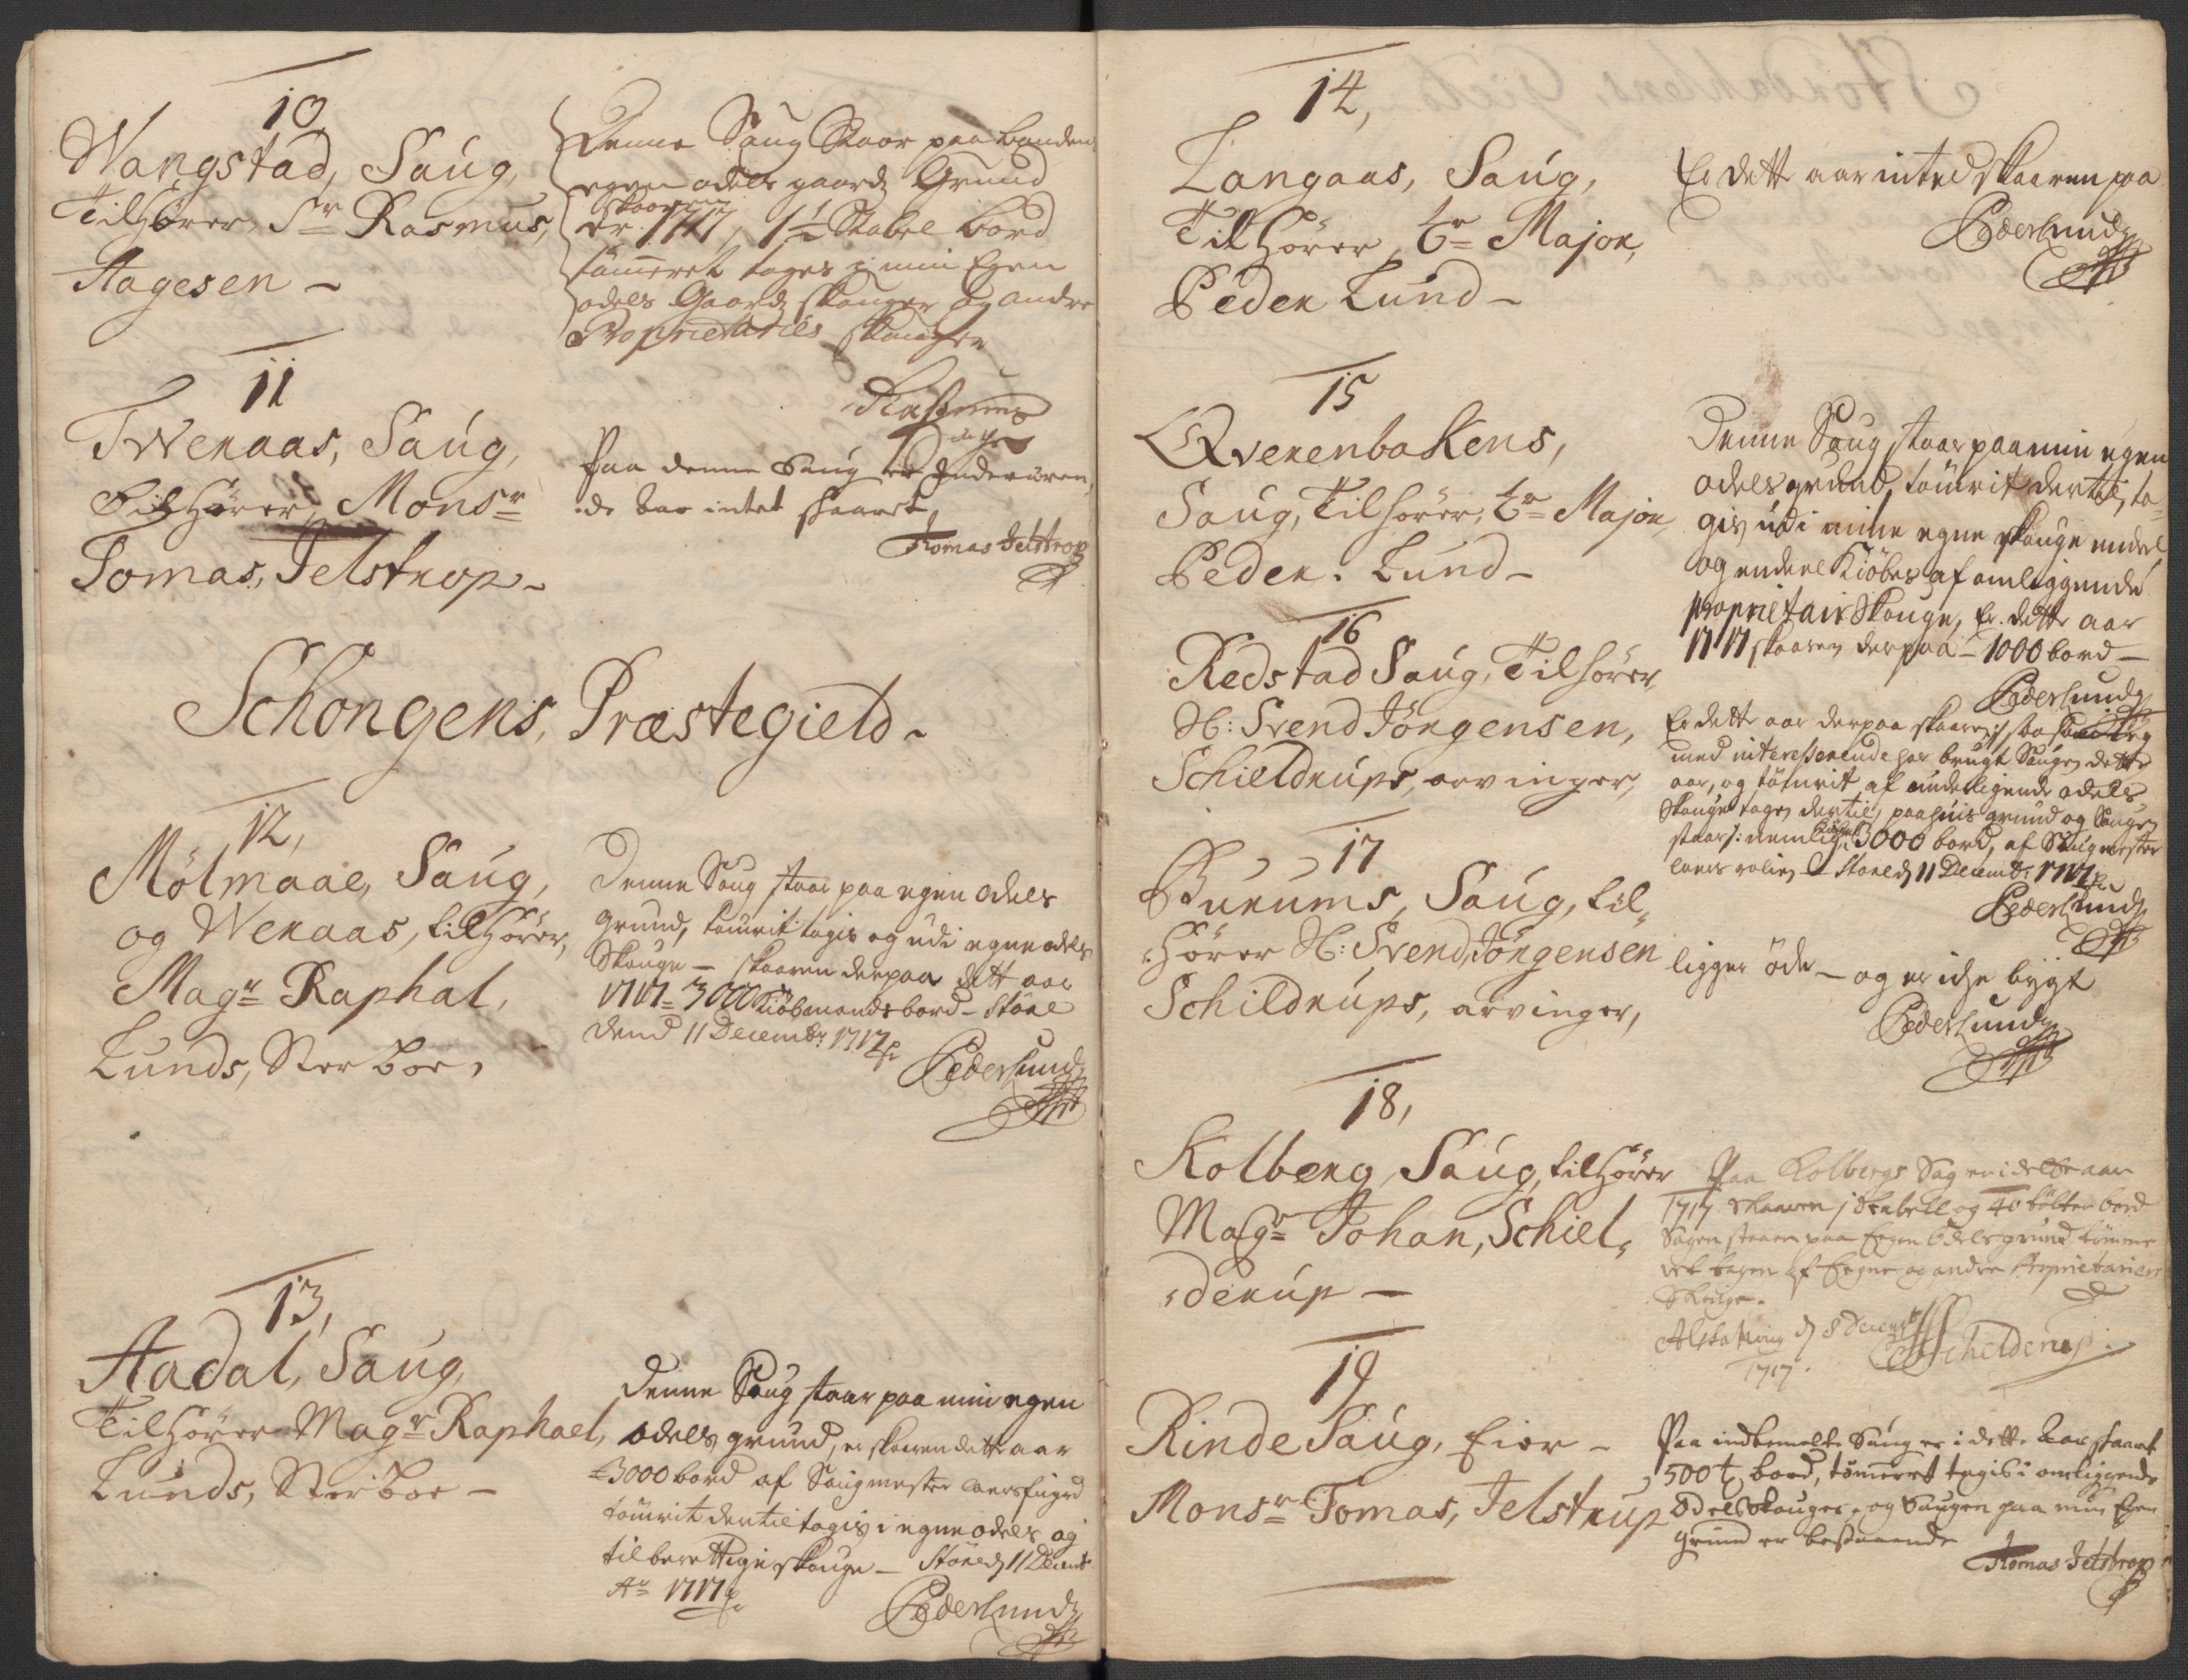 10
Wangstad, Saug,
TilHører, Sr Rasmus,
Hagesen –
Denne Saug Staar paa bonden
egen odels gaards Grund
er skaaren 1717, 1½ Stabel bord
tømmeret tages i min Egen
odels Gaards skouger og andre
Proprietariis skouger
Rasmus
11
TWeraas, Saug,
TilHører, Monsr
Tomas, Jelstrop –
Paa denne Saug er Inderværen,
:de Aar intet skaaret,
Thomas Jelstrop
Schongens, Præstegield –
12,
Mølmaae, Saug,
og Weraas, tilHører,
Magr Raphal,
Lunds, Sterboe,
Denne Saug staar paa egen odels
grund, tømrit tagis og udi egne odels
Skouge – skaaren derpaa dett aar
1717 – 3000 Kiøbmands bord – Støre
dend 11 Decembr: 1717
Peder Lund
13,
Aadal, Saug,
TilHører Magr Raphael,
Lunds, Sterboe –
Denne Saug staar paa min egen
odels grund, er skaaren dette aar
3000 bord af Saugmester
tømrit dertil tagis i egne odels og
tilberettige skouge – Støre d 11 Decemb
Ao 1717
Peder Lund
14,
Langaas, Saug,
TilHører, Hr Major,
Peder Lund –
Er dette aar inted skaaren paa
Peder Lund
15
Qverenbakens,
Saug, Tilhører, Hr Major,
Peder. Lund –
Denne Saug staar paa min egen
odels grund, tømrit dertil, ta-
gis udi mine egne skouge endeel
og endeel Kiøbes af omliggende
proprietair Skouge, Er dette aar
1717 skaaren derpaa – 1000 bord –
Peder Lund
16
Redstad Saug, Tilhører,
H: Svend Jørgensen,
Schieldrups, arvinger,
Er dette aar derpaa skaaren
med interesserende har brugt Saugen dette
aar, og tømrit af underligende odels
Skouge tagen dertil, paa huis grund og Saugen
staar /: nemlig 3000 bord, af Saugmester
Støre d 11 Decembr: 1717
Peder Lund
17
Burums, Saug, til,
:hører H: Svend, Jørgensen
Schildrups, arvinger,
ligger øde – og er iche bygt
Peder Lund
18,
Kolberg, Saug, tilHører
Magr Johan, Schiel,
:derup –
Paa Kolbergs Sag er i dette aar
1717 skaaren 1 Stabell og 40 tölter bord
Sagen staaer paa Eegen Odels grund tømme-
ret tagen af Eegne og andre Proprietariers
Skouge.
Alstahoug d 8 Decemb
1717.
Schelderup.
19
Rinde Saug, Eier –
Monsr Tomas, Jelstrup
Paa indbemelte Saug er i dette Aar skaaret
500 t bord, tømeret tagis i omliggende
Odels Skouger, og Saugen paa min Egen
grund er bestaaende
Thomas Jelstrop